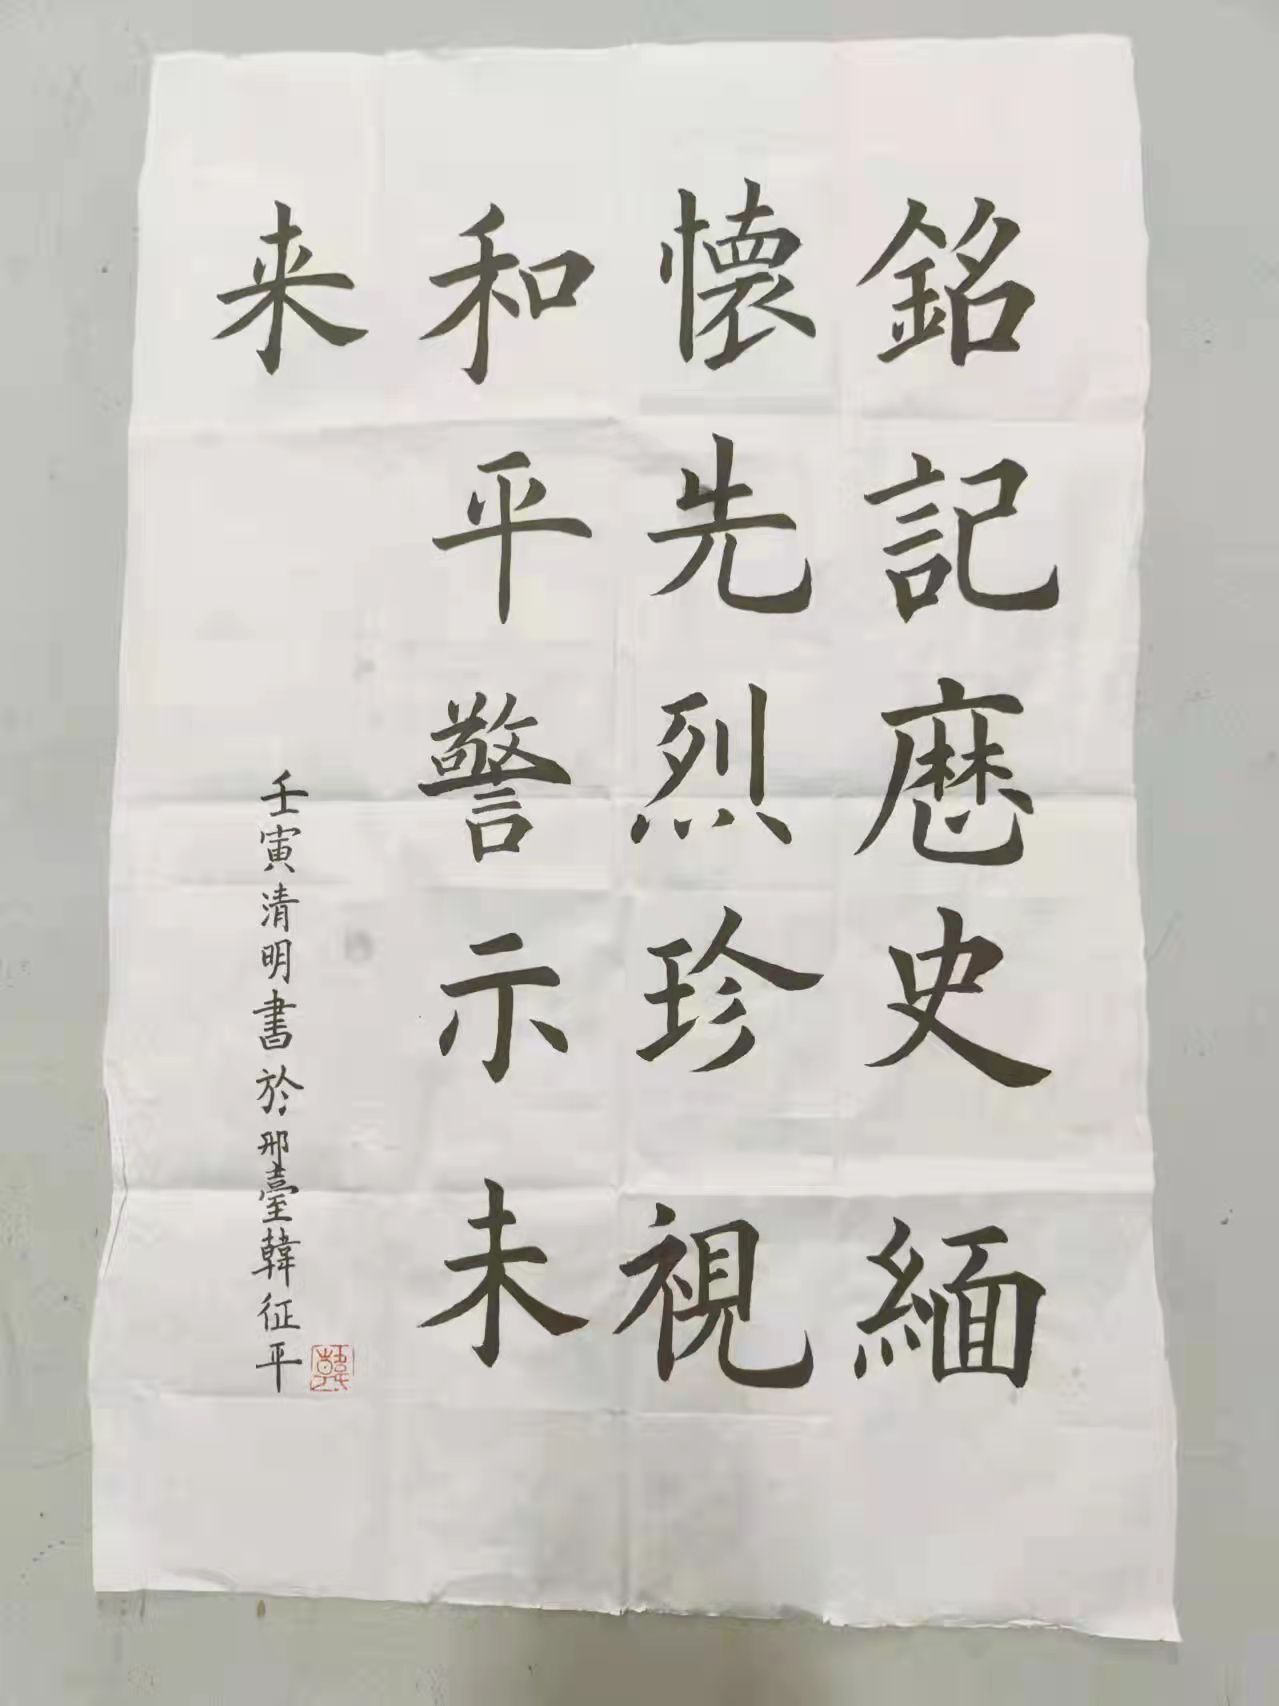 銘記歷史緬
懷先烈珍視
和平警示未
来
壬寅清明書於邢臺韓征平
韓